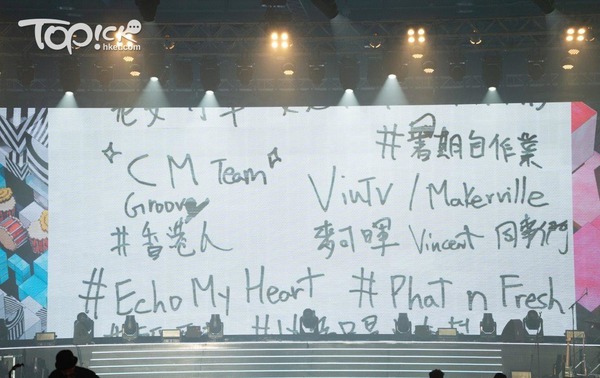 TOPick
hket.com
#暑期自作業
CM Team
Groove
#香港人
ViuTV / Makerville
麥可暉 Vincent 同事們
#Echo My Heart #Phat n Fresh